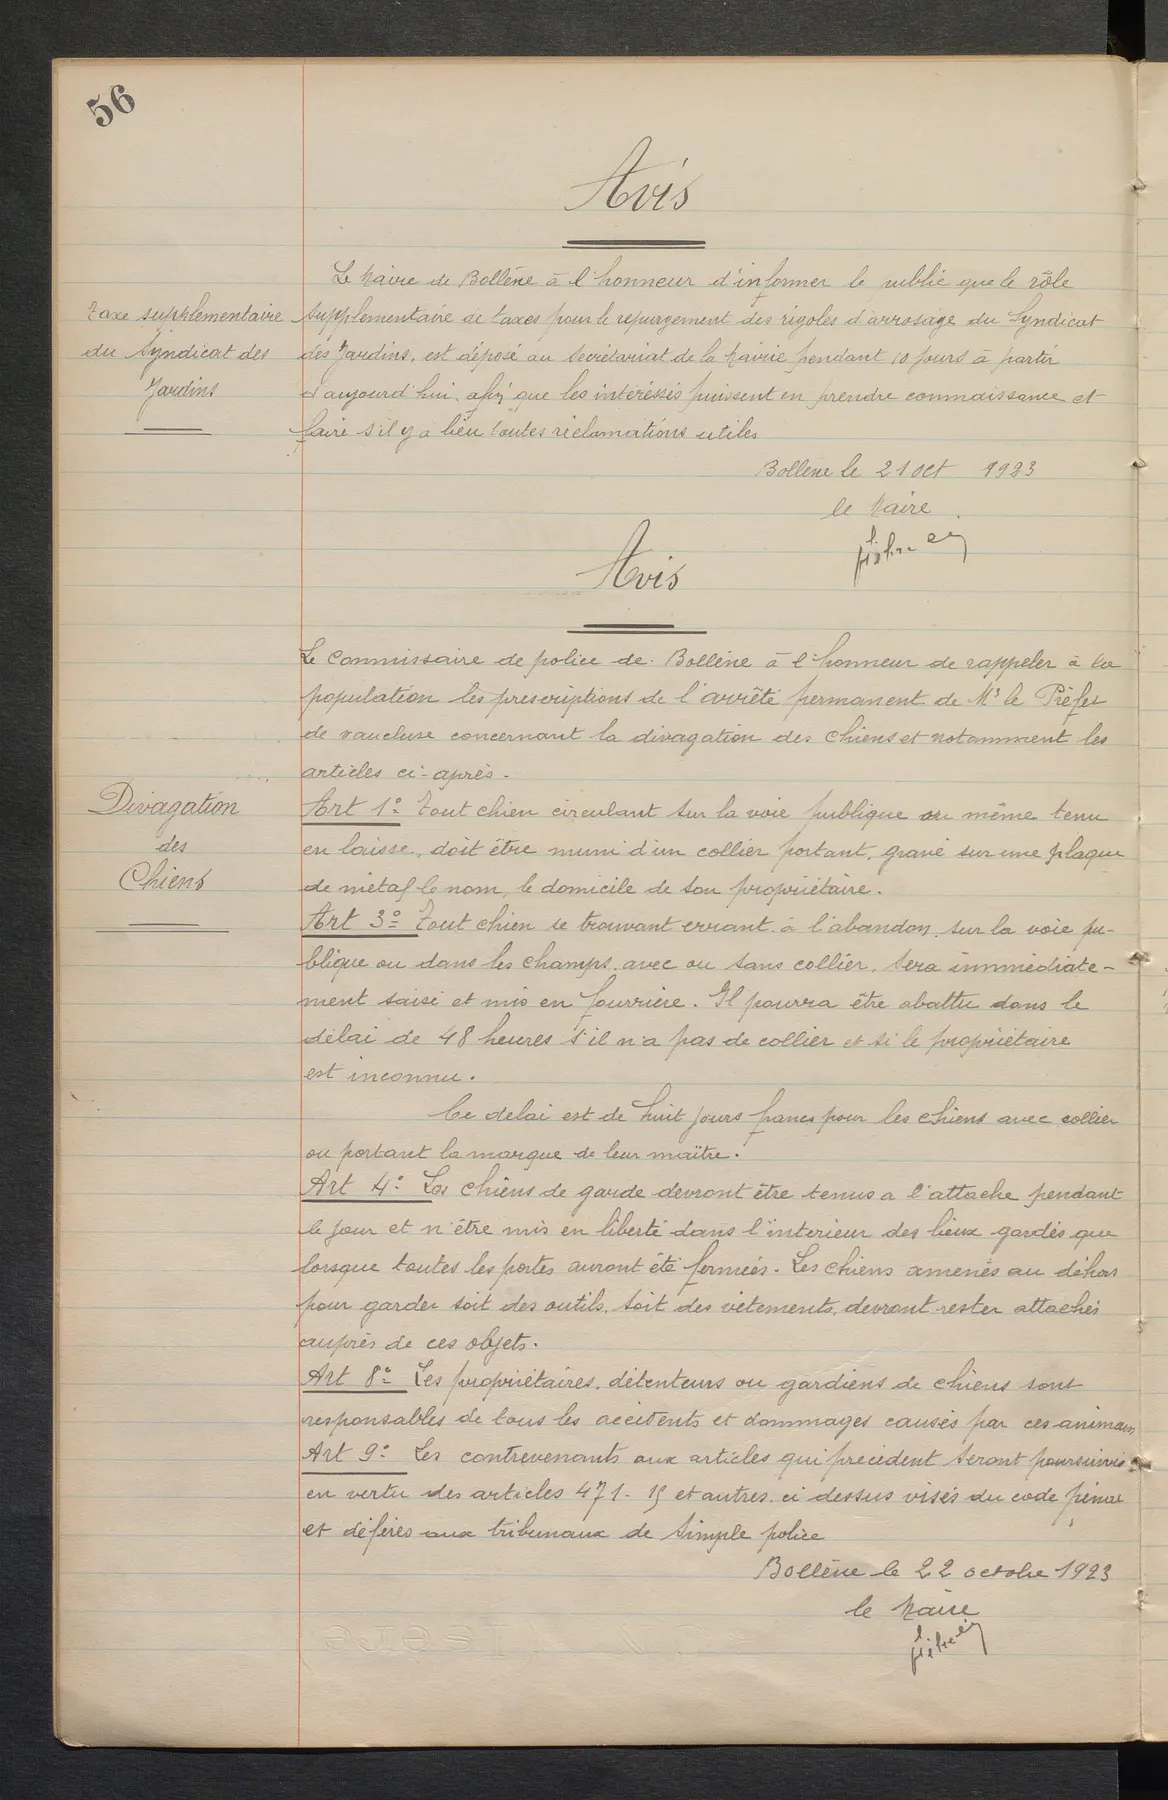 56
Avis
Le Maire de Bollène à l'honneur d'informer le public que le rôle
Taxe supplémentaire
supplémentaire de taxes pour le repurgement des rigoles d'arrosage du Syndicat
du Syndicat des
des Jardins, est déposé au Secrétariat de la Mairie pendant 10 jours à partir
Jardins
d'aujourd'hui, afin que les intéréssés puissent en prendre connaissance et
faire s'il y a lieu toutes réclamations utiles
Bollène le 21 oct 1923
le Maire
Avis
Le Commissaire de police de Bollène à l'honneur de rappeler à la
population les prescriptions de l'arrêté permanent de Mr le Préfet
de vaucluse concernant la divagation des chiens et notamment les
articles ci-après.
Divagation
des
Chiens
Art 1º Tout chien circulant sur la voie publique ou même tenu
en laisse, doit être muni d'un collier portant, gravé sur une plaque
de métal le nom, le domicile de son propriétaire.
Art 3º Tout chien se trouvant errant à l'abandon, sur la voie pu-
blique ou dans les champs, avec ou sans collier, sera immédiate-
ment saisi et mis en fourrière. Il pourra être abattu dans le
délai de 48 heures s'il n'a pas de collier et si le propriétaire
est inconnu.
Ce delai est de huit jours francs pour les chiens avec collier
ou portant la marque de leur maître.
Art 4º Les chiens de garde devront être tenus a l'attache pendant
le jour et n'être mis en liberté dans l'interieur des lieux gardés que
lorsque toutes les portes auront été fermées. Les chiens amenés au déhors
pour garder soit des outils, soit des vêtements, devront rester attachés
auprès de ces objets.
Art 8º Les propriétaires, détenteurs ou gardiens de chiens sont
responsables de tous les accidents et dommages causés par ces animaux
Art 9º Les contrevenants aux articles qui précédent seront poursuivis
en vertu des articles 471-15 et autres ci dessus visés du code pénal
et déférés aux tribunaux de simple police
Bollène le 22 octobre 1923
le Maire